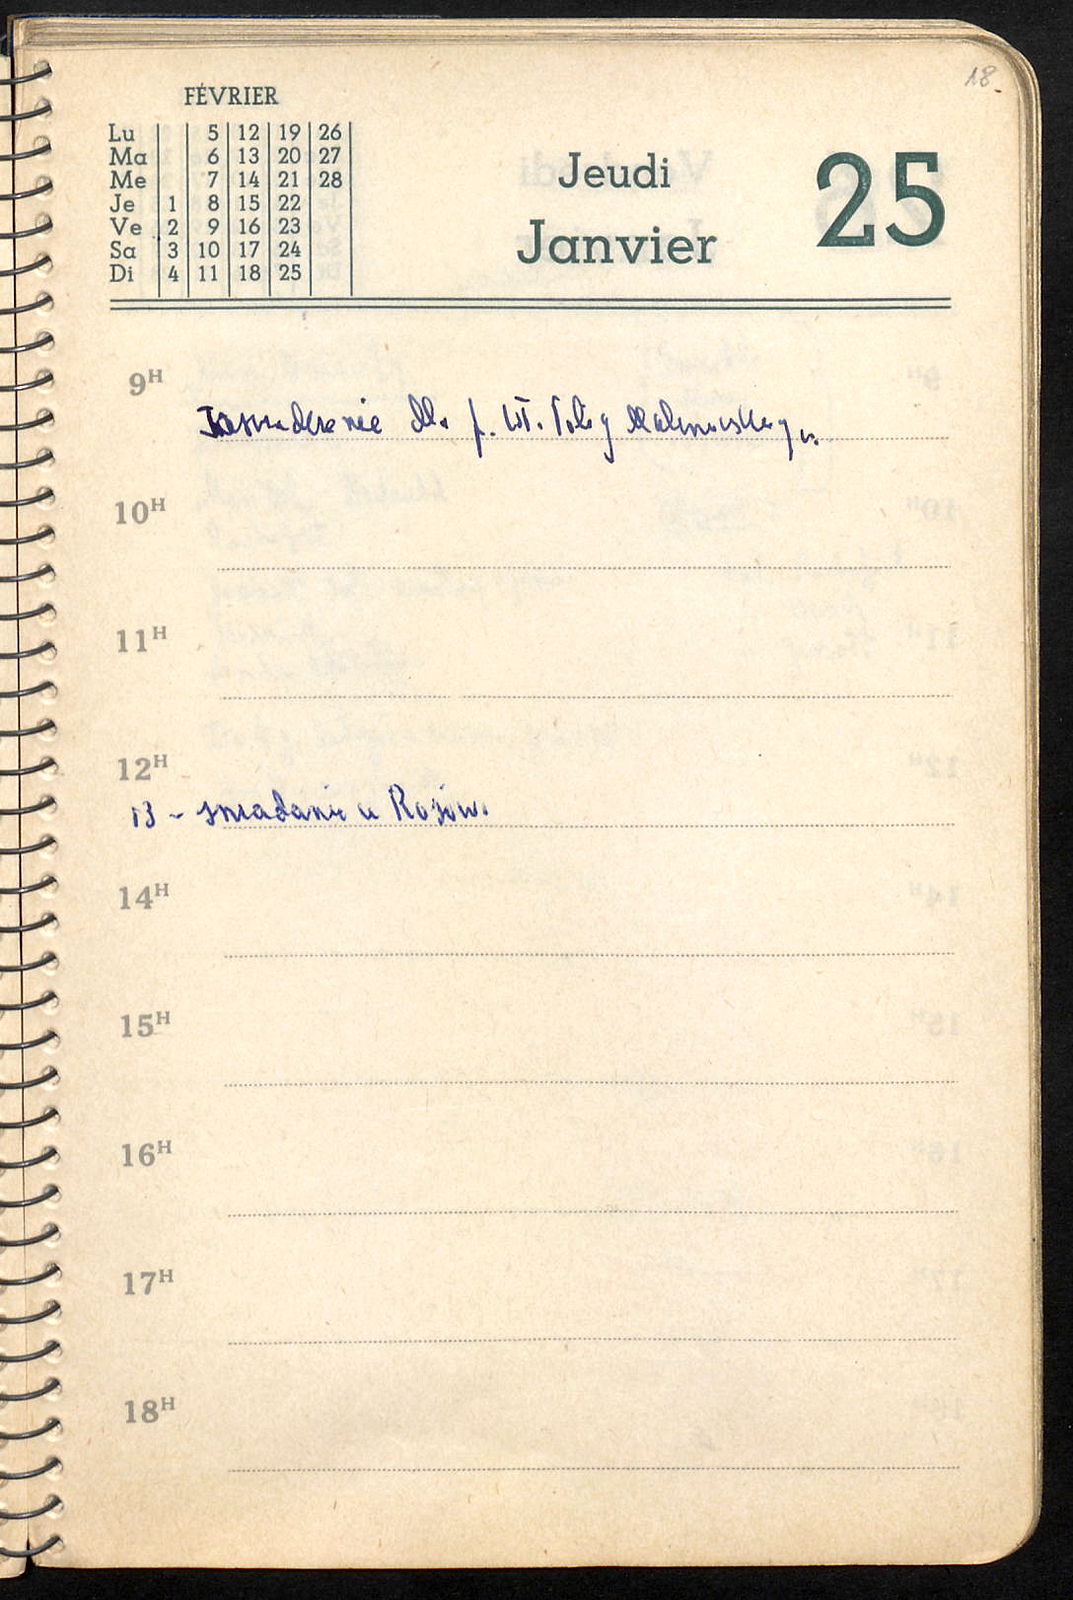 18.
FÉVRIER
Lu 5 12 19 26
Ma 6 13 20 27
Me 7 14 21 28
Je 1 8 15 22
Ve 2 9 16 23
Sa 3 10 17 24
Di 4 11 18 25
Jeudi
Janvier
25
9H
dla p. Wł.
10H
11H
12H
13 - śniadanie u Rojów.
14H
15H
16H
17H
18H